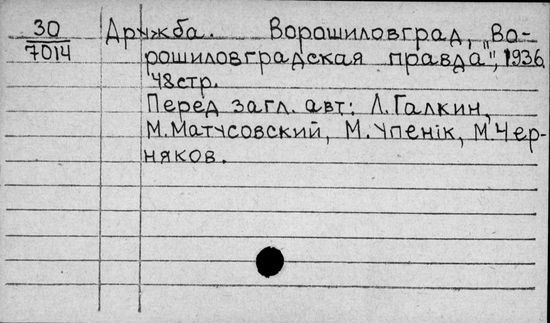 30
7014
Дружба. Ворошиловград, „Во-
рошиловградская правда", 1936.
48стр.
Перед загл. авт: Л.Галкин,
М.Матусовский, М.Упенік, М.Чер-
няков.